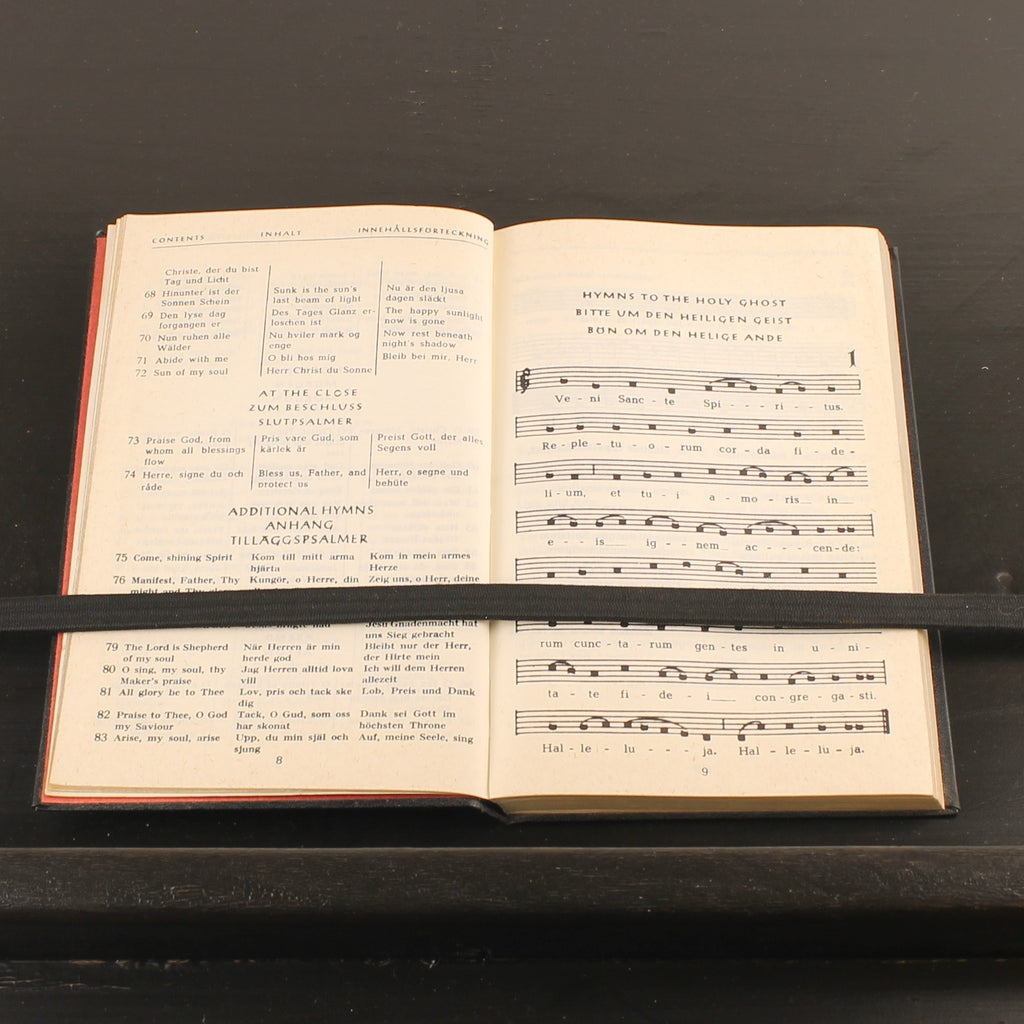 CONTENTS INHALT INNEHÅLLSFÖRTECKNING
Christe, der du bist
Tag und Licht
68 Hinunter ist der Sunk is the sun's Nu är den ljusa
Sonnen Schein last beam of light dagen släckt
69 Den lyse dag Des Tages Glanz er- The happy sunlight
forgangen er loschen ist now is gone
70 Nun ruhen alle Nu hviler mark og Now rest beneath
Wälder enge night's shadow
71 Abide with me O bli hos mig Bleib bei mir, Herr
72 Sun of my soul Herr Christ du Sonne
AT THE CLOSE
ZUM BESCHLUSS
SLUTPSALMER
73 Praise God, from Pris vare Gud, som Preist Gott, der alles
whom all blessings kärlek är Segens voll
flow
74 Herre, signe du och Bless us, Father, and Herr, o segne und
råde protect us behüte
ADDITIONAL HYMNS
ANHANG
TILLÄGGSPSALMER
75 Come, shining Spirit Kom till mitt arma Kom in mein armes
hjärta Herze
76 Manifest, Father, Thy Kungör, o Herre, din Zeig uns, o Herr, deine
might and Thy
Jesu Gnadenmacht hat
uns Sieg gebracht
79 The Lord is Shepherd När Herren är min Bleibt nur der Herr,
of my soul herde god der Hirte mein
80 O sing, my soul, thy Jag Herren alltid lova Ich will dem Herren
Maker's praise vill allezeit
81 All glory be to Thee Lov, pris och tack ske Lob, Preis und Dank
dig
82 Praise to Thee, O God Tack, O Gud, som oss Dank sei Gott im
my Saviour har skonat höchsten Throne
83 Arise, my soul, arise Upp, du min själ och Auf, meine Seele, sing
sjung
8
HYMNS TO THE HOLY GHOST
BITTE UM DEN HEILIGEN GEIST
BÖN OM DEN HELIGE ANDE
1
Ve - ni Sanc - te Spi - - - ri - - tus.
Re - ple - tu - o - rum cor - da fi - de -
li - um, et tu - i a - mo - ris in
e - - is ig - nem ac - - - cen-de:
rum cunc - ta - rum gen - tes in u - ni -
ta - te fi - de - i con - gre - ga - sti.
Hal - le - lu - - - ja. Hal - le - lu - ja.
9